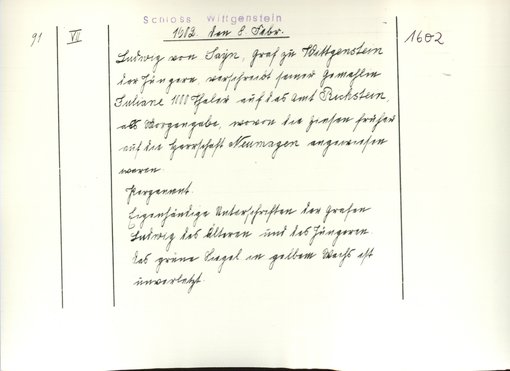 Schloss Wittgenstein
91 VII 1603. den 8. Febr. 1602
Ludwig von Sayn, Graf zu Wittgenstein
der Jüngere, verschreibt seiner Gemahlin
Juliane 1100 Thaler auf das Amt Richstein,
als Morgengabe, wovon die Zinsen früher
auf die Herrschaft Neumagen angewiesen
waren.
Pergament.
Eigenhändige Unterschriften der Grafen
Ludwig des Älteren und des Jüngeren
das grüne Siegel in gelbem Wachs ist
unverletzt.